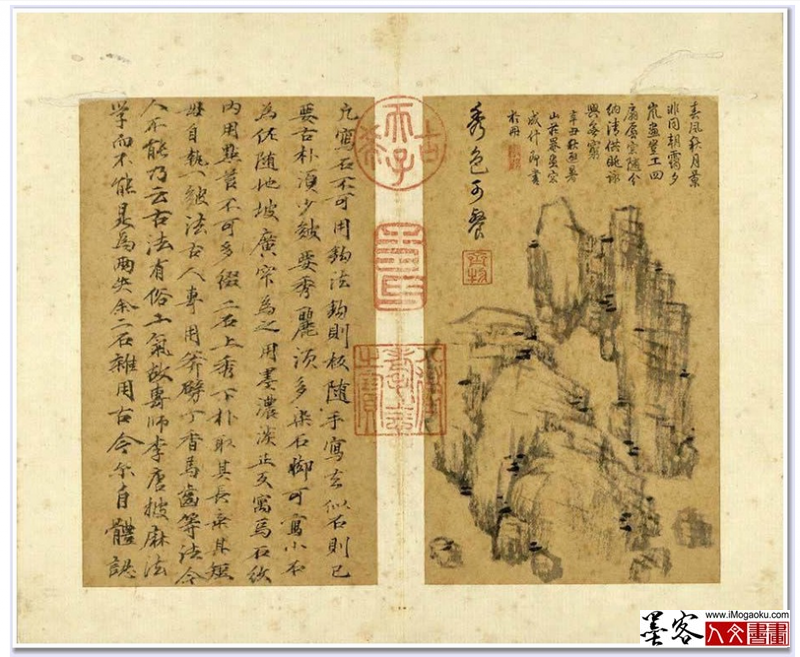 春風秋月景
非同朝靄夕
嵐盡望工四
納清供眺詠
興無窮
辛丑秋
山莊
成什即書
於册
秀色可餐
古希天子
凡寫石不可用鈎法鈎則板随手寫去似石則已
要古朴須少皴要秀麗須多染石脚可寫小石
為佐随地坡廣窄為之用墨濃淡正反寫焉石紋
内用點苔不可多綴二石上秀下朴取其長棄其短
毋自執一皴法古人專用斧劈丁香馬齒等法今
人不能乃云古法有俗工氣故專師李唐披麻法
学而不能是為兩失余二石雜用古今尔自體認
www.iMogaoku.com
墨客
人文書畫